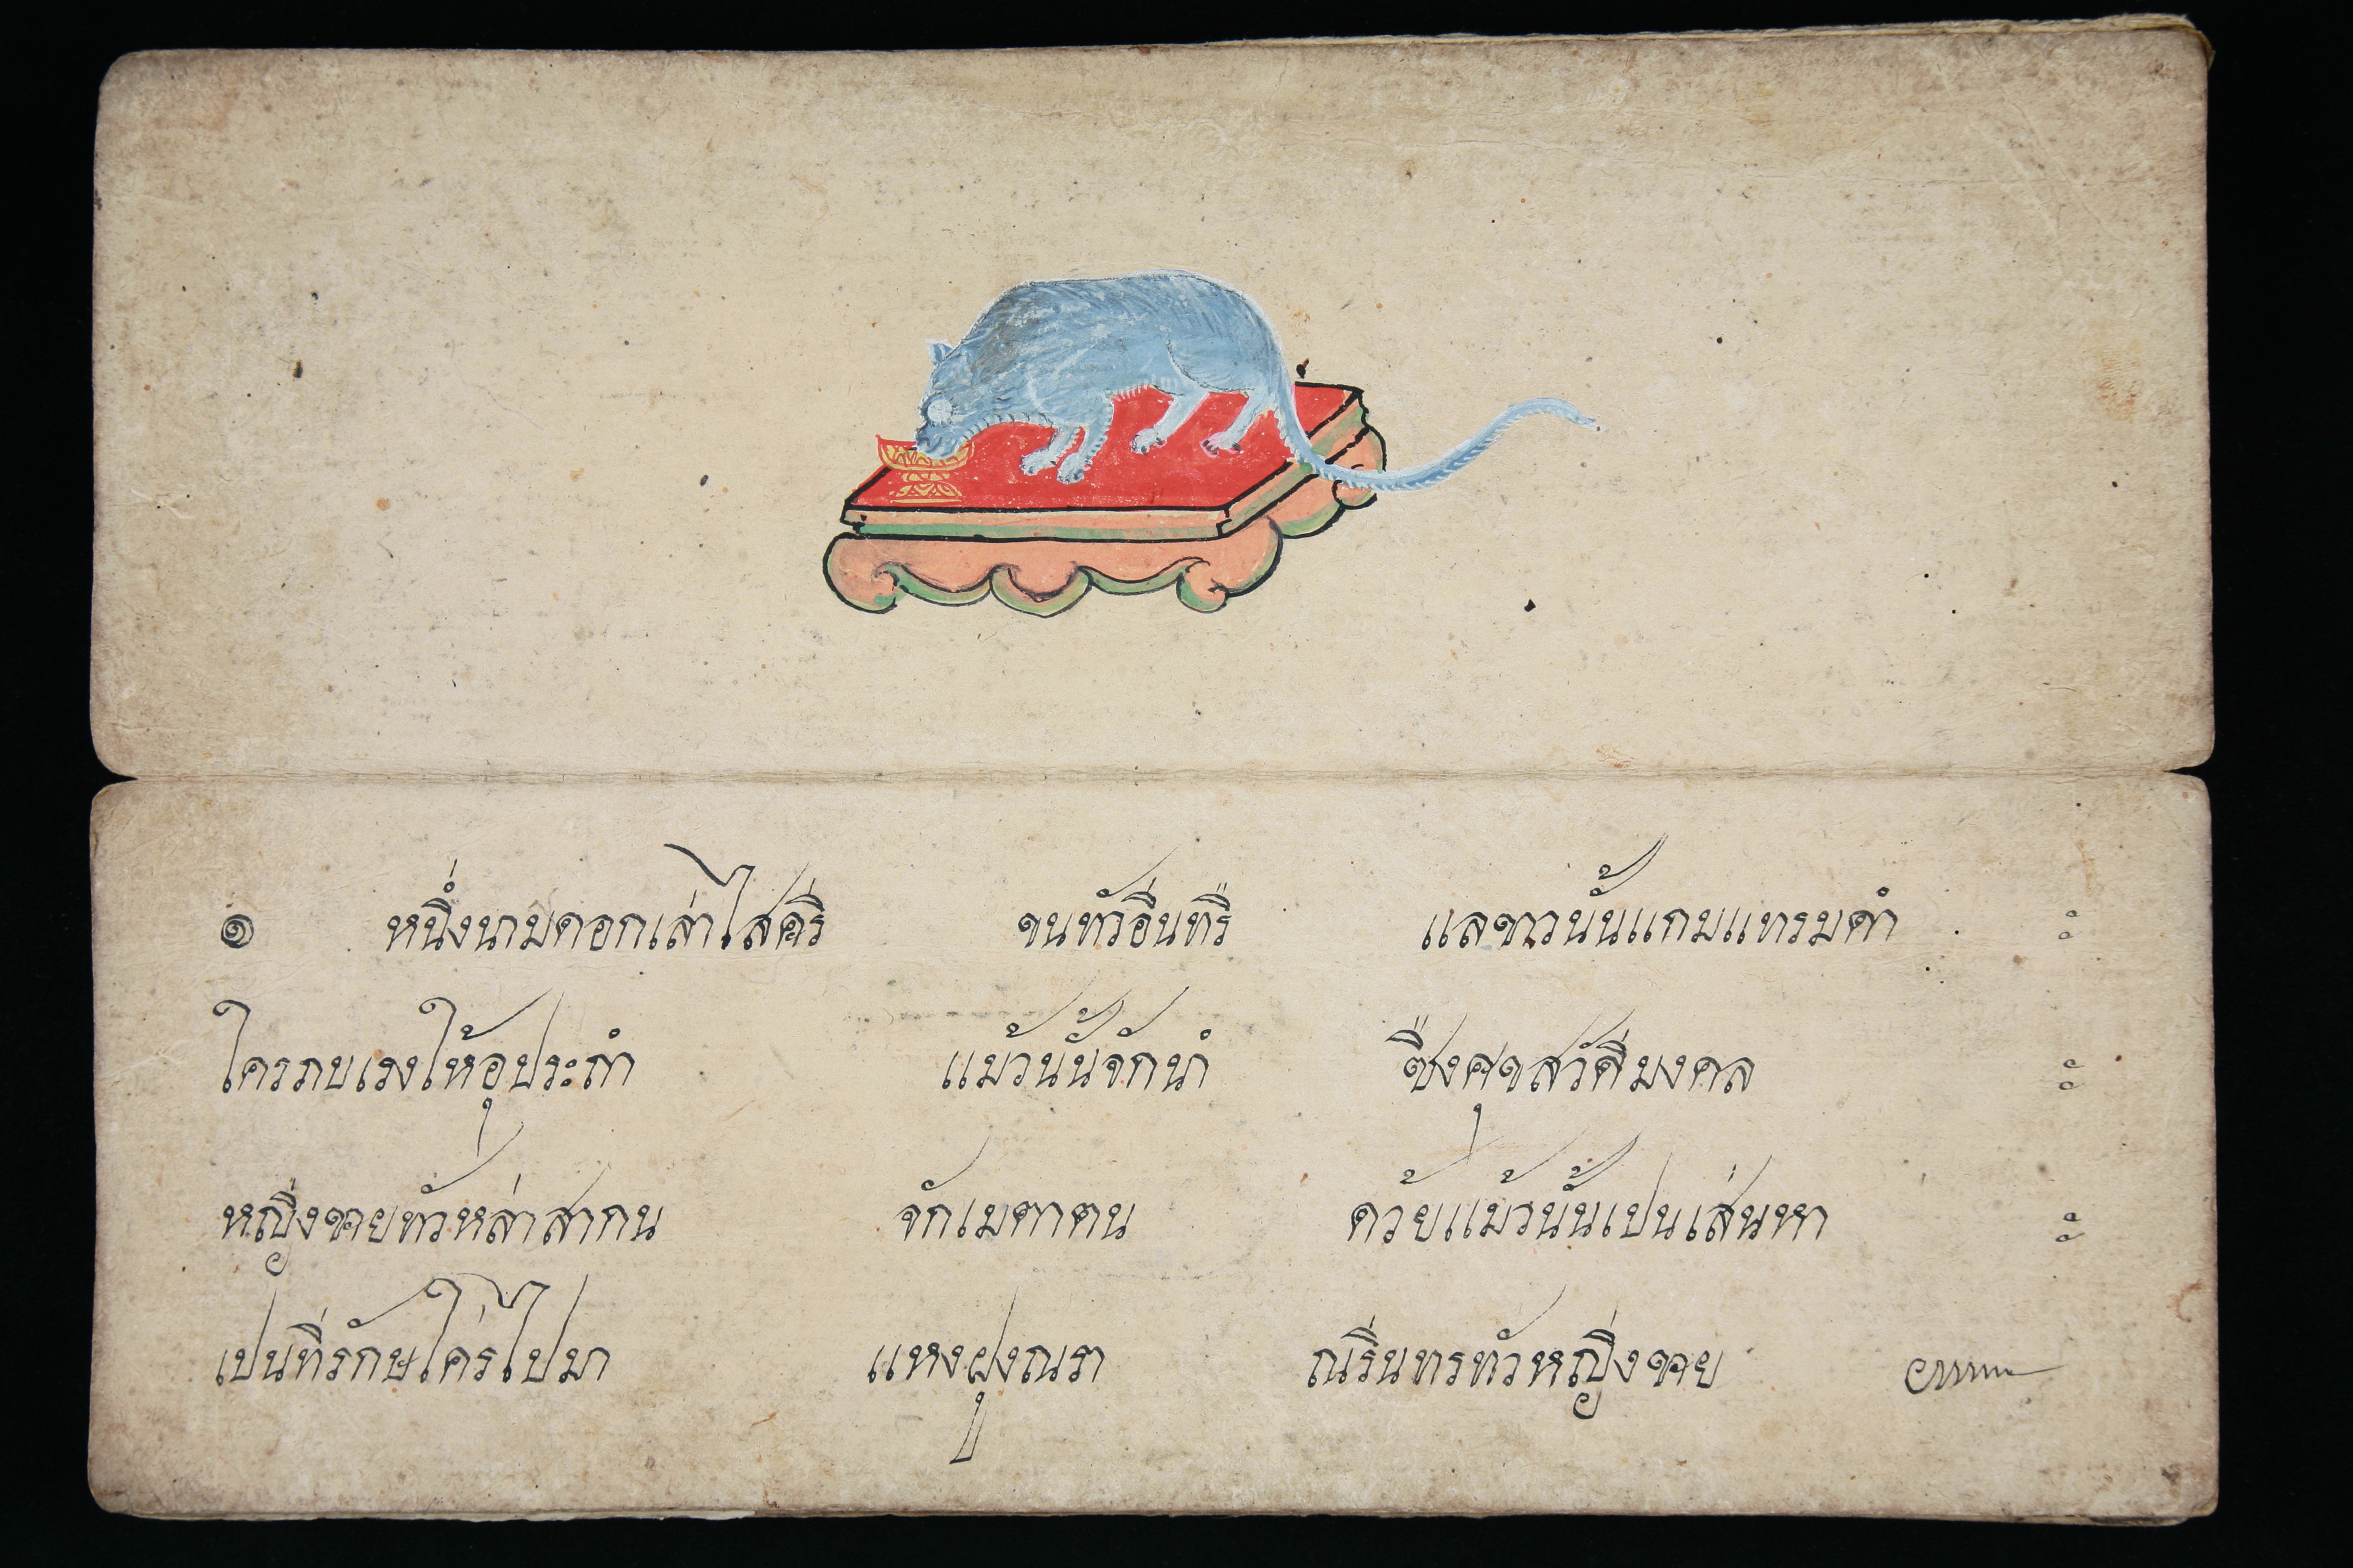 ๏ หนึ่งนามดอกเล่าไสคีรี ขนทัวอืนทรี แลขาวนั้นแกมแทรมดำ ะ
ใครภบเรงให้อุประถำ แม้วนั้นจักนำ ซืงศุขสวัศดีมงคล ะ
หญิ่งชายทัวหล่าสากน จักเมตาตน ด้วยแม้วนั้นเปนเส่นหา ะ
เปนที่รักษใค่รไปมา แหงฝุงณรา ณริ่นทรทัวหญิ่งชาย